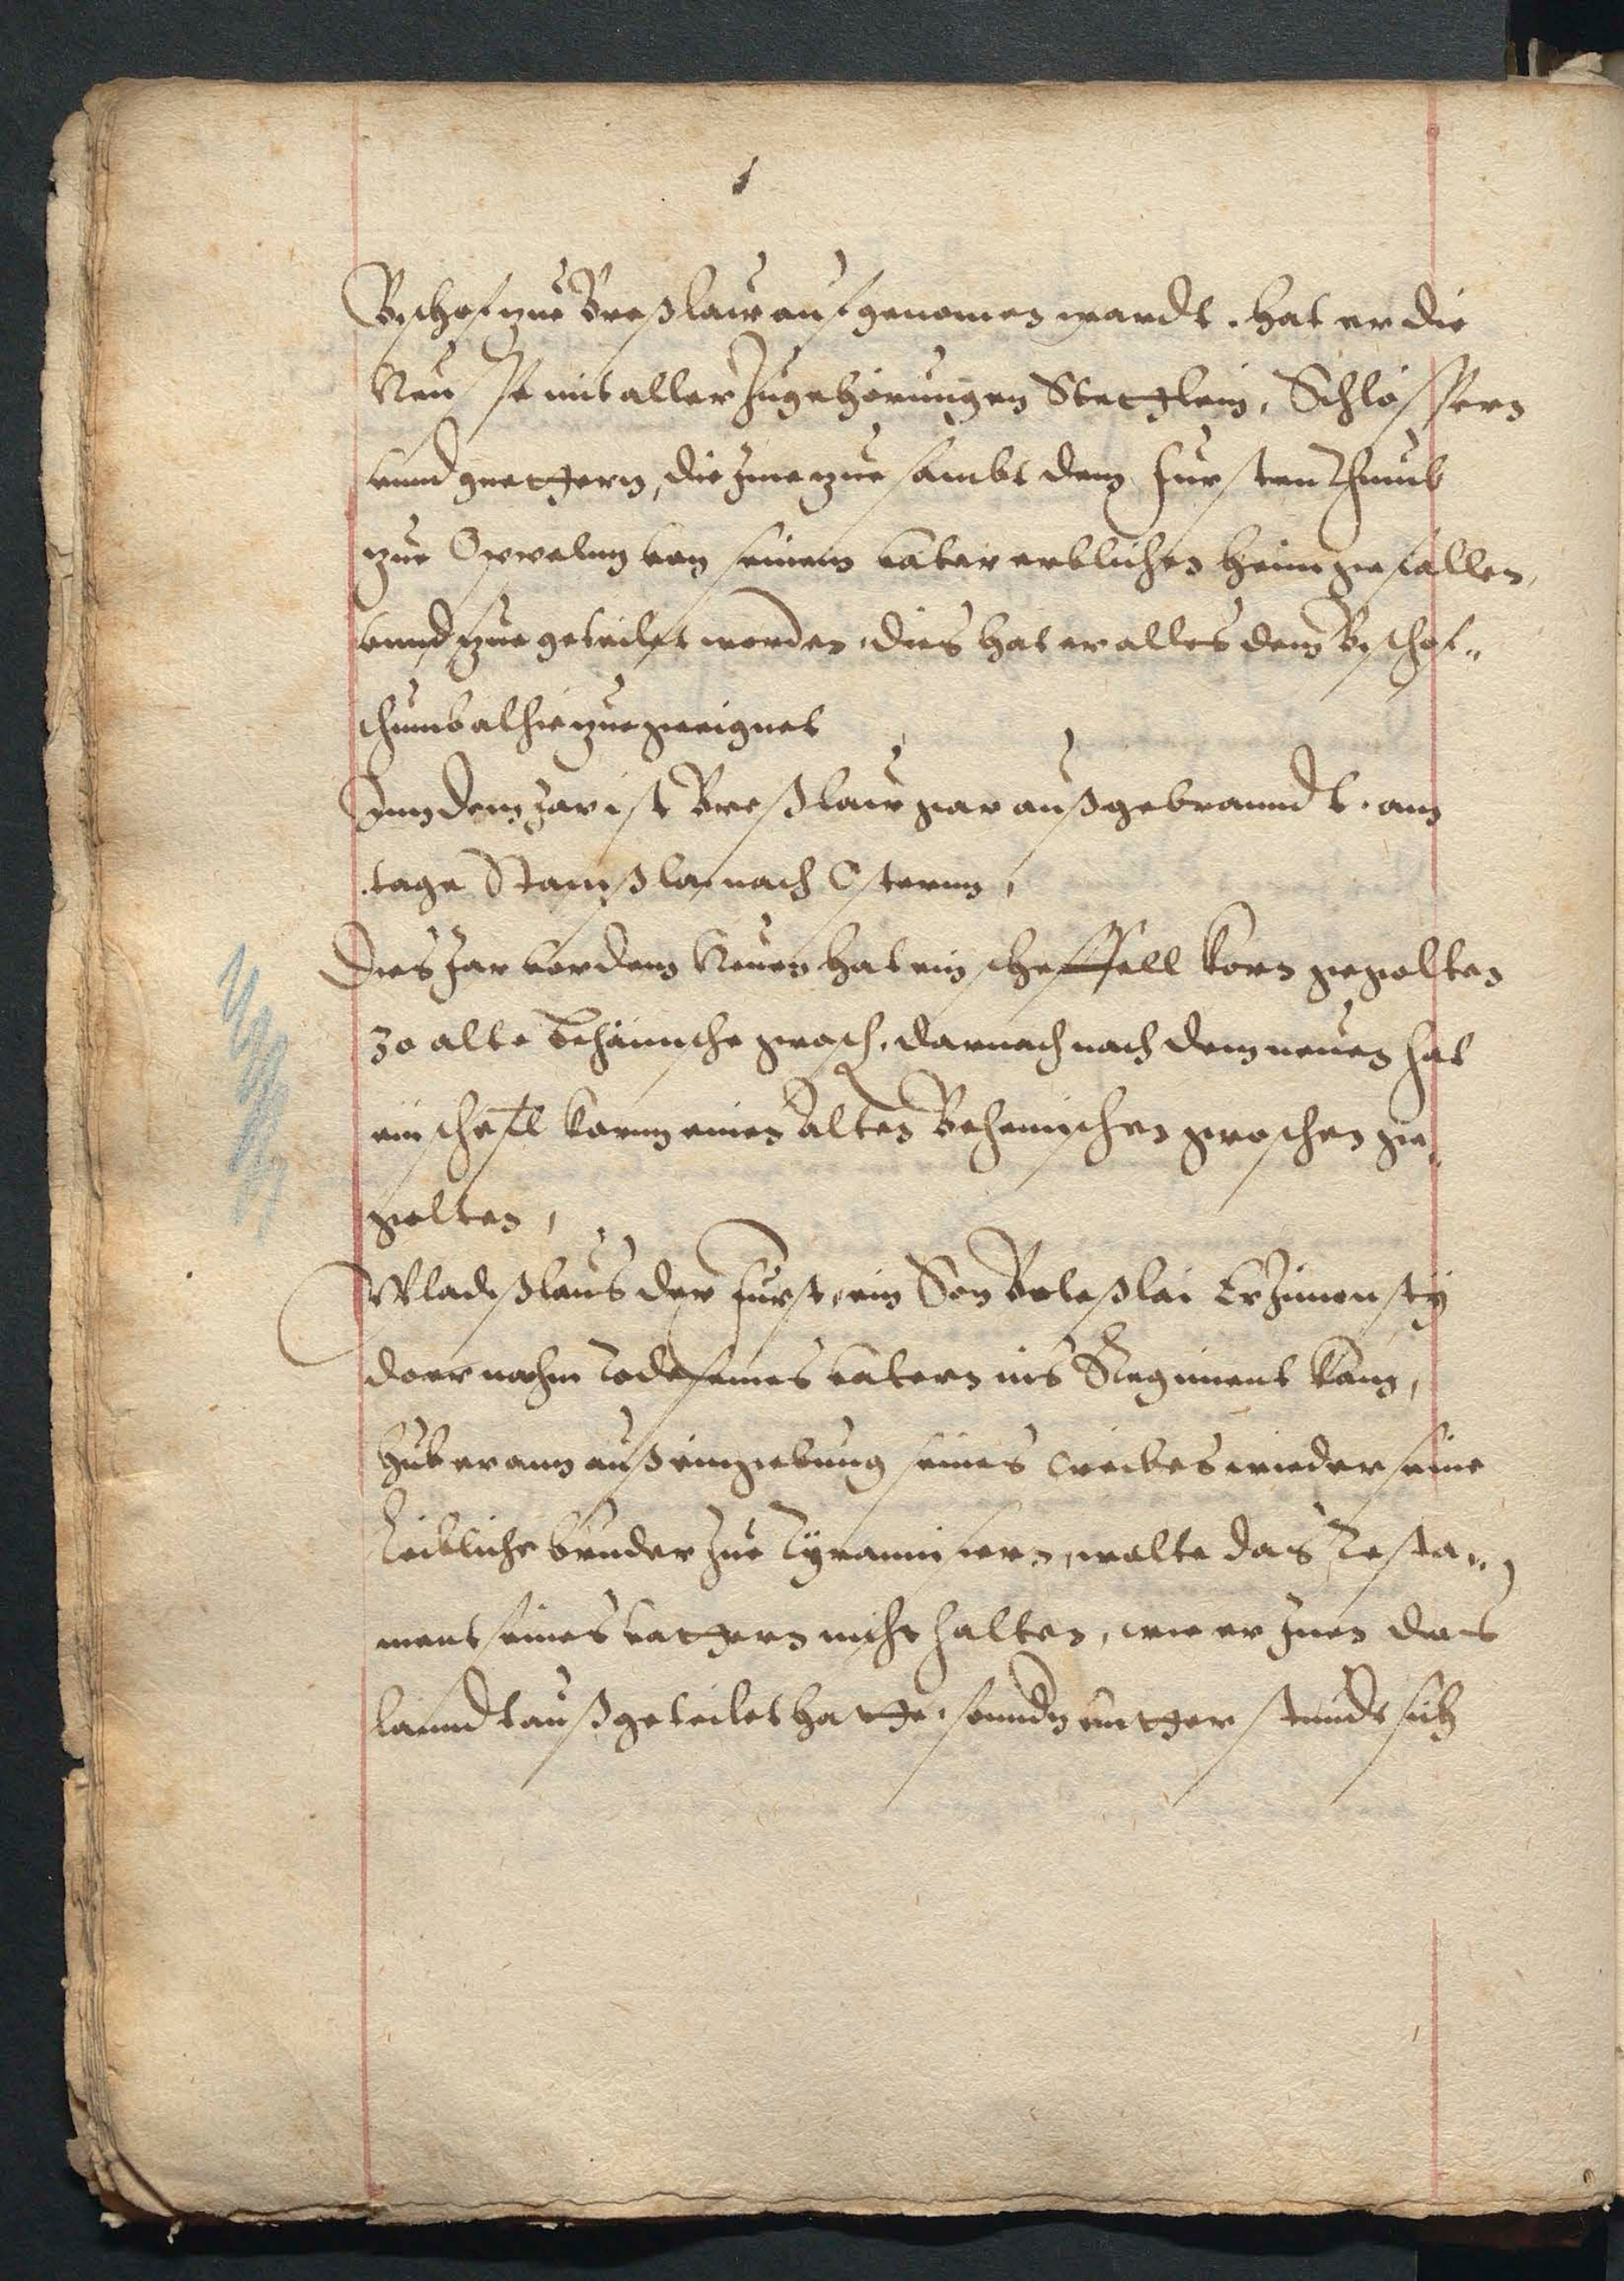 Bischof zue Breßlaw aufgenomen wardt. hat er die
Neuße mit aller zugehörungen Stetlein, Schlössern
unnd guettern, die Ime zue sambt dem furstenthumb
zue Oppeln von seinem vater erblichen heimgefallen,
unnd zue geteilet worden, dies hat er alles dem Bischof„
thumb alhie zue geeignet
Inn dem Jar ist Breßlaw gar außgebranndt. am
tage Stanißlai nach Ostern,
Dies Jar vor dem Neuen hat ein scheffell korn gegolten
30 alte Behämische grosch, darnach nach dem neuen hat
ein schefl korn einen alten Behemischen groschen ge„
golten,
Wladißlaus der Furst, ein Son Boleßlai Crziwousty
do er nachm tode seines vatern ins Regiment kam,
Hub er ann auß eingebung seines weibes wieder seine
Leibliche bruder zue Tyrannisiren, wolte das Testa„
ment seines vattern nicht halten, wie er Inen das
Lanndt außgeteilet hatte. sonndern unterstundt sich